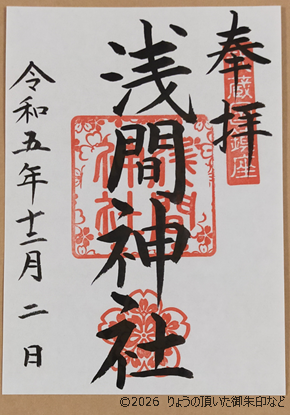 奉拝
蔵 鎮座
浅間神社
令和五年十二月二日
©2026 りょうの頂いた御朱印など